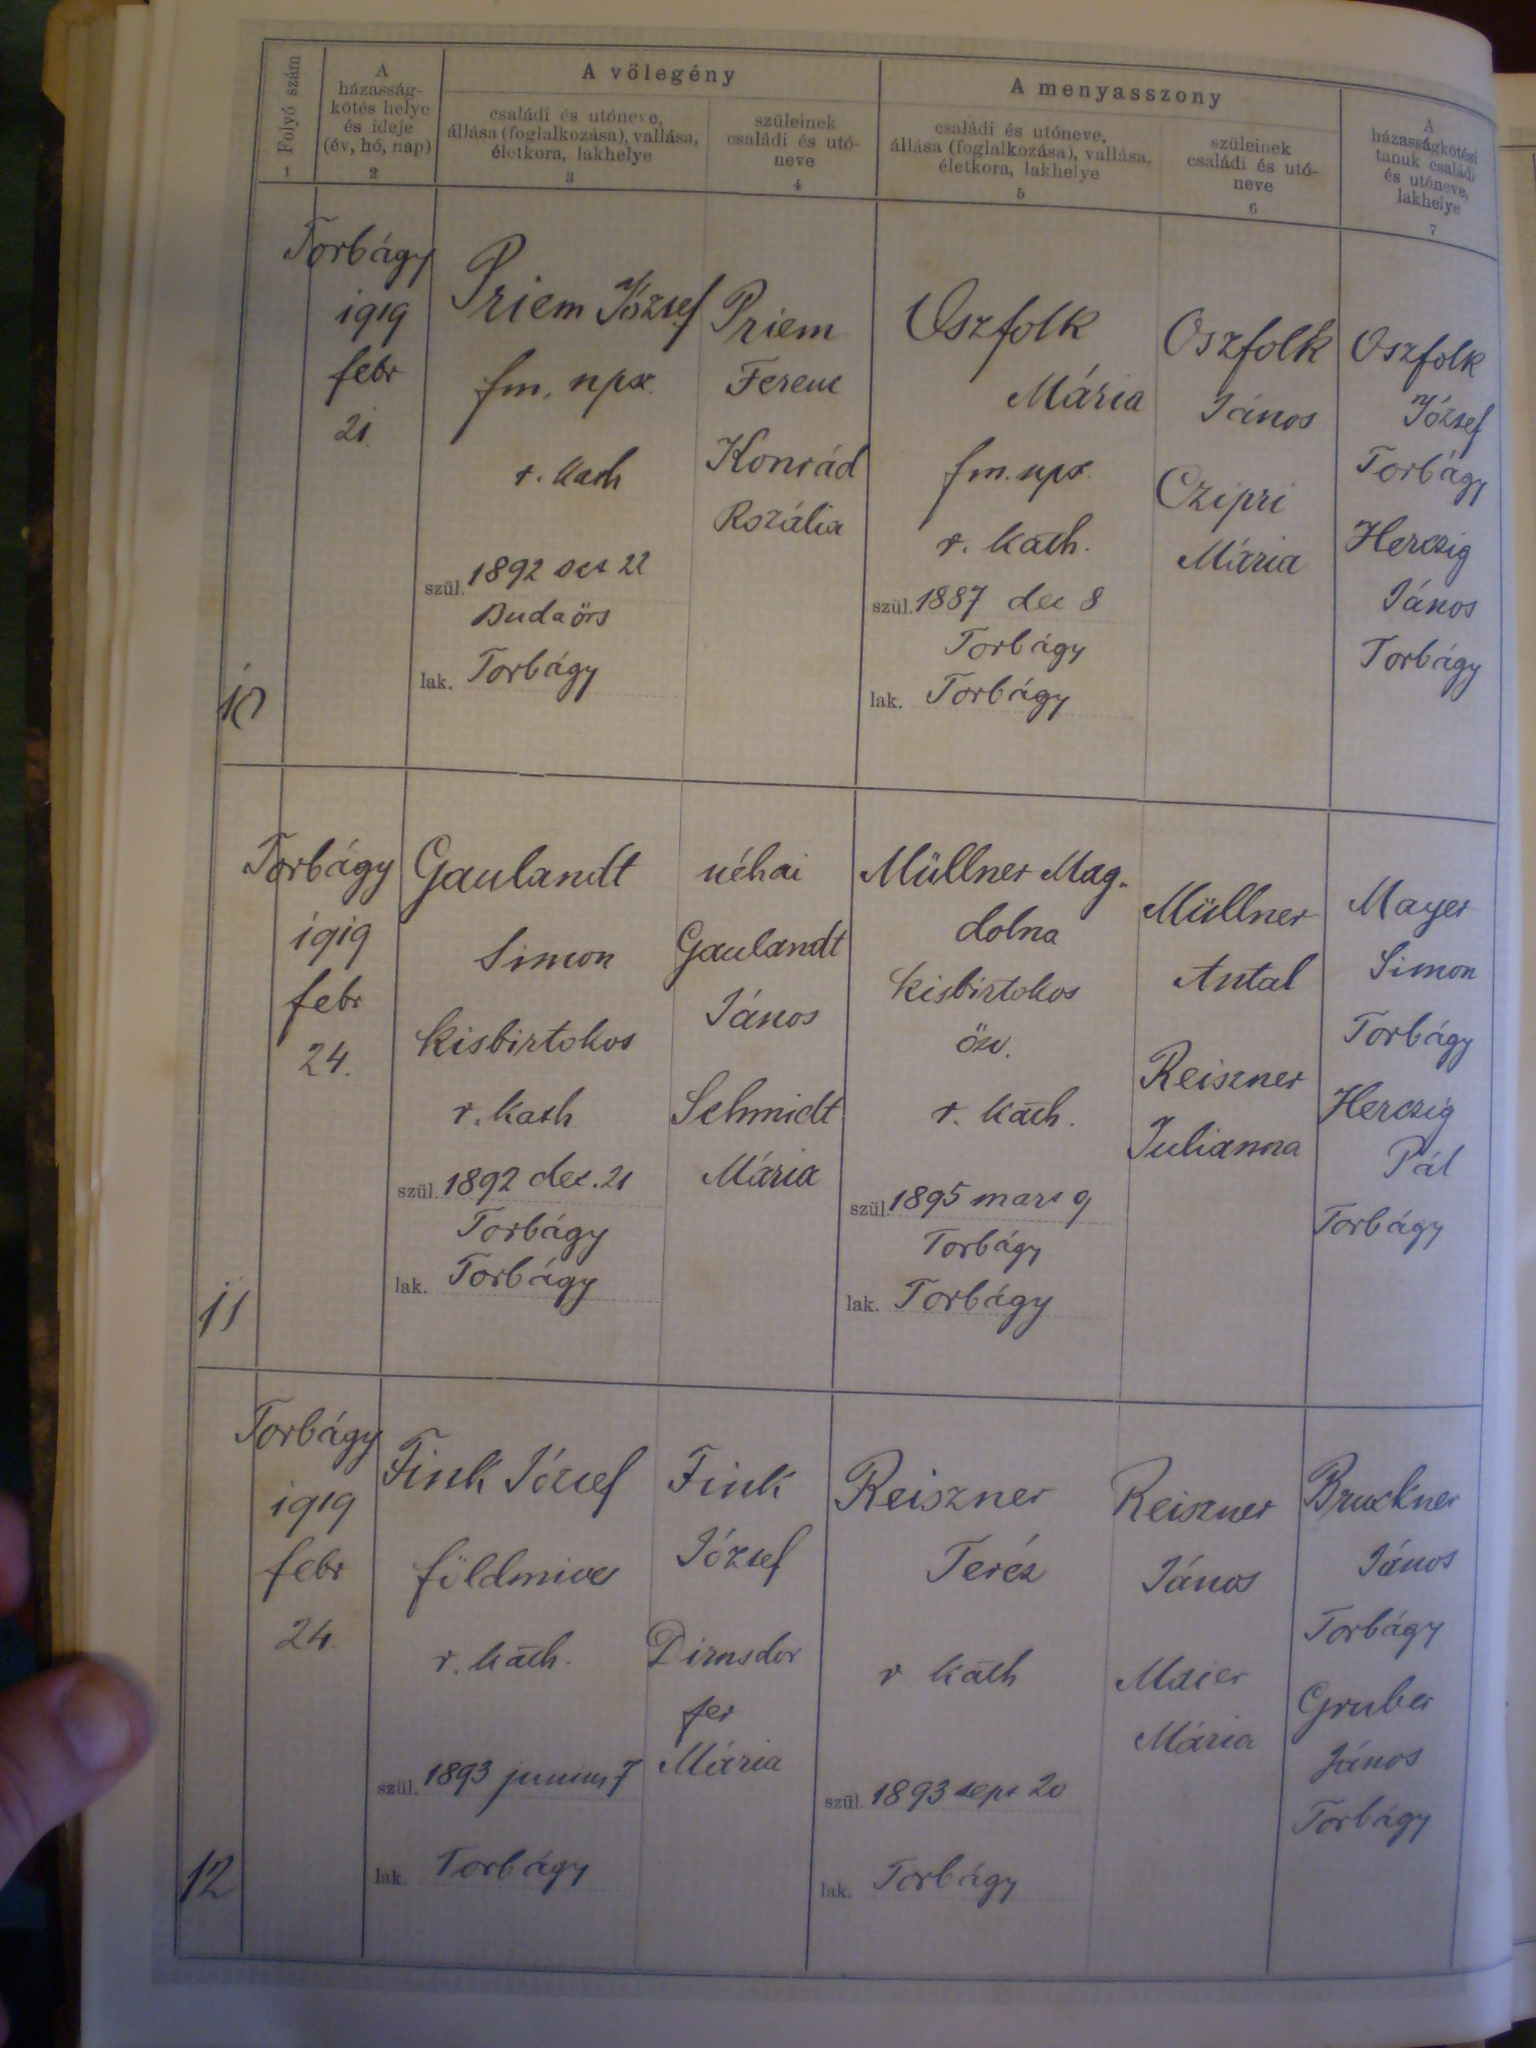 Folyó szám
1
A
házasság-
kötés helye
és ideje
(év, hó, nap)
2
A vőlegény
családi és utóneve,
állása (foglalkozása), vallása,
életkora, lakhelye
3
szüleinek
családi és utó-
neve
4
A menyasszony
családi és utóneve,
állása (foglalkozása), vallása,
életkora, lakhelye
5
szüleinek
családi és utó-
neve
6
A
házasságkötési
tanuk családi
és utóneve,
lakhelye
7
10
Torbágy
1919
febr
21.
Priem József
fm. npsz.
r. kath
szül. 1892 oct 22
Budaörs
lak. Torbágy
Priem
Ferenc
Konrád
Rozália
Oszfolk
Mária
fm. npsz.
r. kath.
szül. 1887 dec 8
Torbágy
lak. Torbágy
Oszfolk
János
Czipri
Mária
Oszfolk
József
Torbágy
Herczig
János
Torbágy
11
Torbágy
1919
febr
24.
Gaulandt
Simon
kisbirtokos
r. kath.
szül. 1892 dec. 21
Torbágy
lak. Torbágy
néhai
Gaulandt
János
Schmidt
Mária
Müllner Mag-
dolna
kisbirtokos
özv.
r. kath.
szül. 1895 mart 9
Torbágy
lak. Torbágy
Müllner
Antal
Reiszner
Julianna
Mayer
Simon
Torbágy
Herczig
Pál
Torbágy
12
Torbágy
1919
febr
24.
Fink József
földmives
r. kath.
szül. 1893 junius 7
lak. Torbágy
Fink
József
Dirnsdor
fer
Mária
Reiszner
Teréz
r kath
szül. 1893 sept 20
lak. Torbágy
Reiszner
János
Maier
Mária
Bruckner
János
Torbágy
Gruber
János
Torbágy